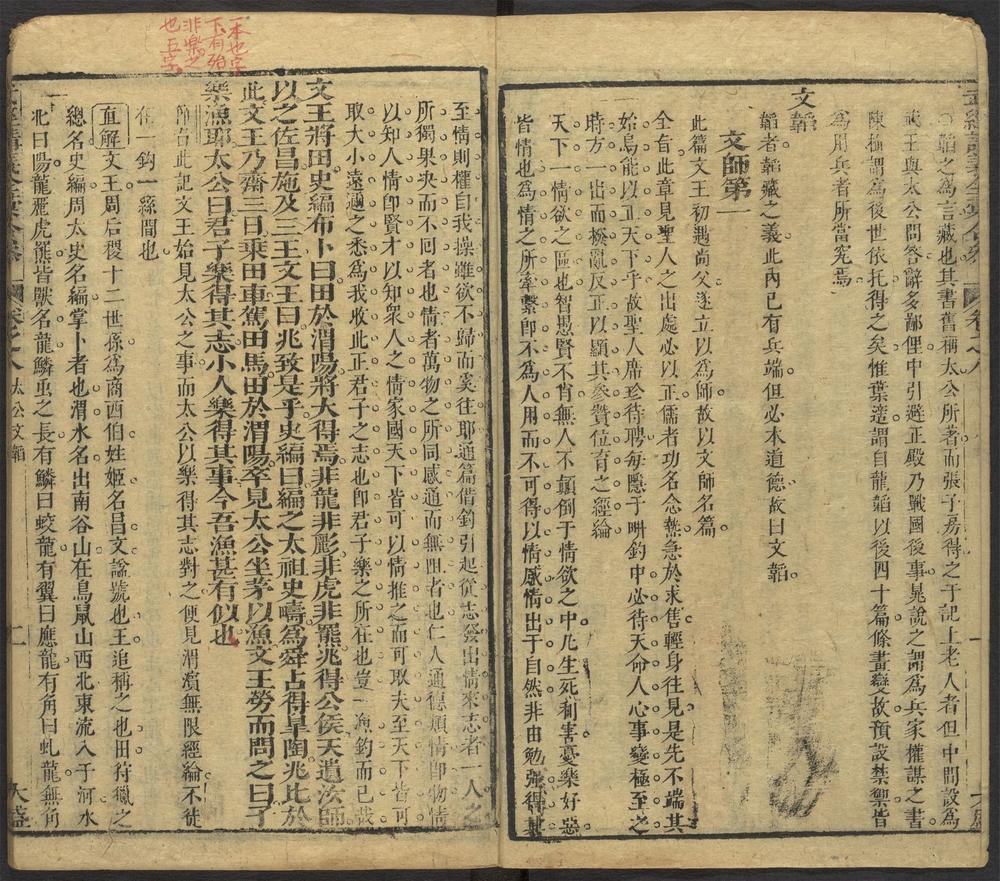 韜之為言藏也其書舊稱太公所著而張子房得之于圯上老人者但中間設為
武王與太公問答辭多鄙俚中引避正殿乃戰國後事晁說之謂為兵家權謀之書
陳極謂為後世依托得之矣惟葉適謂自龍韜以後四十篇條畫變故預設禁禦皆
為用兵者所當究焉
文韜
韜者韜藏之義此內已有兵端但必本道德故曰文韜
文師第一
此篇文王初遇尚父遂立以為師故以文師名篇
全旨此章見聖人之出處必以正儒者功名念熱急於求售輕身往見是先不端其
始烏能以正天下乎故聖人席珍待聘每隱于畊釣中必待天命人心事變極至之
時方一出而撥亂反正以顯其參贊位育之經綸
天下一情欲之區也智愚賢不肖無人不顛倒于情欲之中凡生死利害憂樂好惡
皆情也為情之所牽繫即不為人用而不可得以情感情出于自然非由勉強得其
至情則權自我操雖欲不歸而奚往耶通篇借釣引起從志發出情來志者一人之
所獨果央而不回者也情者萬物之所同感通而無阻者也仁人通德類情即物情
以知人情即賢才以知衆人之情家國天下皆可以情推之而可取夫至天下皆可
取大小遠邇之悉為我收此正君子之志也即君子樂之所在也豈一漁釣而已哉
文王將田史編布卜曰田於渭陽將大得焉非龍非彲非虎非羆兆得公侯天遺汝師
以之佐昌施及三王文王曰兆致是乎史編曰編之太祖史疇為舜占得皐陶兆比於
此文王乃齋三日乗田車駕田馬田於渭陽卒見太公坐茅以漁文王勞而問之曰子
樂漁耶太公曰君子樂得其志小人樂得其事今吾漁甚有似也
一本也字
下有殆
非樂之
也五字
節旨此記文王始見太公之事而太公以樂得其志對之便見渭濱無限經綸不徒
在一鈎一絲間也
直解文王周后稷十二世孫為商西伯姓姬名昌文諡號也王追稱之也田狩獵之
總名史編周太史名編掌卜者也渭水名出南谷山在鳥鼠山西北東流入于河水
北曰陽龍彲虎羆皆獸名龍鱗虫之長有鱗曰蛟龍有翼曰應龍有角曰虬龍無角
卷之八 太公文韜
二
大盛